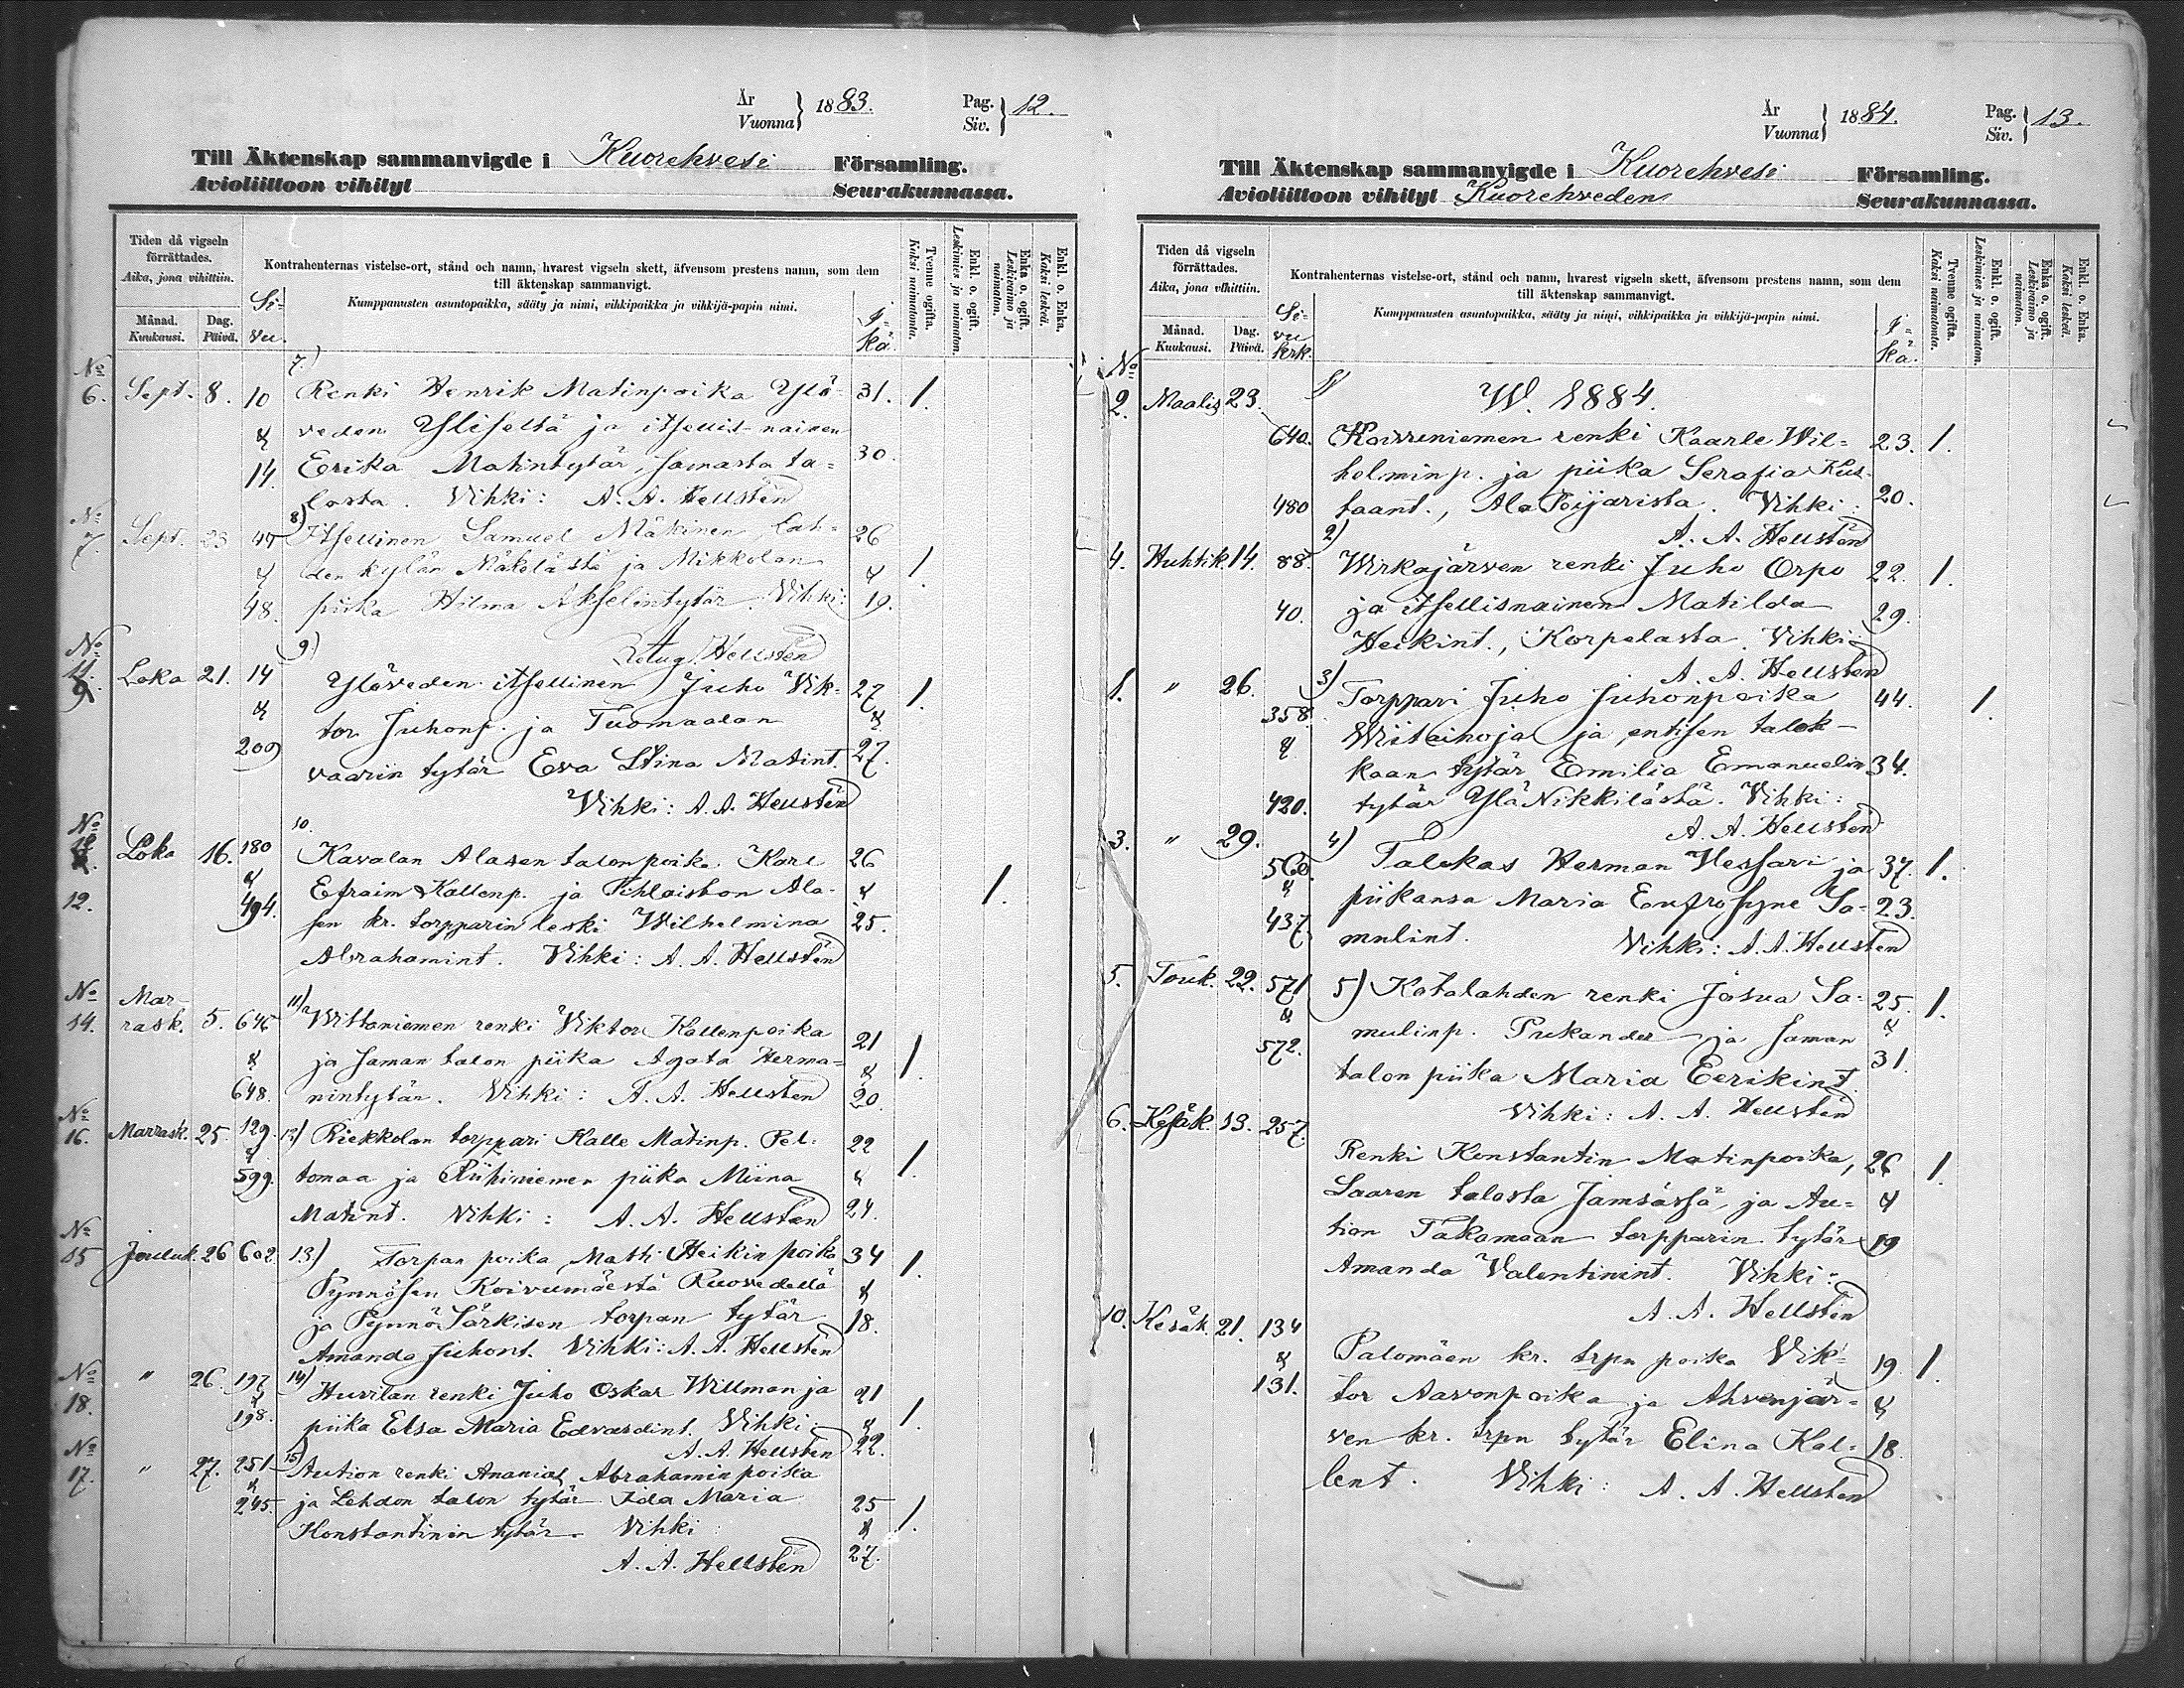 År Vuonna } 1883. Pag. Siv. } 12.
Till Äktenskap sammanvigde i Kuorehvesi Församling.
Avioliittoon vihityt Seurakunnassa.
Tiden då vigseln förrättades.
Aika, jona vihittiin.
Månad. Kuukausi.
Dag. Päivä.
Sivu.
Kontrahenternas vistelse-ort, stånd och namn, hvarest vigseln skett, äfvensom prestens namn, som dem
till äktenskap sammanvigt.
Kumppanusten asuntopaikka, sääty ja nimi, vihkipaikka ja vihkijä-papin nimi.
Ikä.
Tvenne ogifta. Kaksi naimatonta.
Enkl. o. ogift. Leskimies ja naimaton.
Enka o. ogift. Leskivaimo ja naimaton.
Enkl. o. Enka. Kaksi leskeä.
7.)
No 6. Sept. 8. 10 Renki Henrik Matinpoika Ylö- 31. 1.
& veden Yliseltä ja itsellis-nainen
14. Erika Matintytär, samasta ta= 30.
losta. Vihki: A. A. Hellstén
No 7. Sept. 23 8) Itsellinen Samuel Mäkinen, Lah= 26
& den kylän Mäkelästä ja Mikkolan & 1.
48. piika Hilma Akselintytär. Vihki: 19.
9.) Hellstén
No Loka 21. 14 Ylöveden itsellinen Juho Vik- 27 1.
& tor Juhonp. ja Tuomaalan &
209 vaarin tytär Eva Stina Matint. 27.
Vihki: A. A. Hellstén
10.
No Loka 16. 180 Kavalan Alasen talon poika Karl 26
& Efraim Kallenp. ja Pihlaiston Ala- & 1.
12. 494. sen kr. torpparin leski Wilhelmina 25.
Abrahamint. Vihki: A. A. Hellstén
No 14. Mar-
rask. 5. 646 11) Wittaniemen renki Viktor Kallenpoika 21
& ja saman talon piika Agata Herma= & 1.
648. nintytär. Vihki: A. A. Hellstén 20
No 16. Marrask. 25. 129. 12) Riekkolan torppari Kalle Matinp. Pel- 22
& 599. tomaa ja Riihiniemen piika Miina & 1.
Matint. Vihki: A. A. Hellstén 24.
No 15 Jouluk. 26 602 13) Torpan poika Matti Heikin poika 34 1.
Pynnösen Koivumäestä Ruovedellä &
ja Pynnö Särkisen torpan tytär 18.
Amanda Juhont. Vihki: A. A. Hellstén
No 18. " 26. 197 14) Huvilan renki Juho Oskar Willman ja 21
& 198. piika Elsa Maria Edvardint. Vihki: & 1.
A. A. Hellstén 22.
No 17. " 27. 251 15) Aution renki Ananias Abrahaminpoika
& 245. ja Lehdon talon tytär Ida Maria 25 1.
Konstantinin tytär. Vihki: &
A. A. Hellstén 27.
År Vuonna } 1884. Pag. Siv. } 13.
Till Äktenskap sammanvigde i Kuorehvesi Församling.
Avioliittoon vihityt Kuorehveden Seurakunnassa.
Tiden då vigseln förrättades.
Aika, jona vihittiin.
Månad. Kuukausi.
Dag. Päivä.
Sivu kirk.
Kontrahenternas vistelse-ort, stånd och namn, hvarest vigseln skett, äfvensom prestens namn, som dem
till äktenskap sammanvigt.
Kumppanusten asuntopaikka, sääty ja nimi, vihkipaikka ja vihkijä-papin nimi.
Ikä.
Tvenne ogifta. Kaksi naimatonta.
Enkl. o. ogift. Leskimies ja naimaton.
Enka o. ogift. Leskivaimo ja naimaton.
Enkl. o. Enka. Kaksi leskeä.
No 2. Maalis 23. 1) W. 1884.
640. Koivuniemen renki Kaarle Wil= 23. 1.
helminp. ja piika Serafia Kus-
480 taant., Ala Poijarista. Vihki: 20.
2) A. A. Hellstén
4. Huhtik. 14. 88. Wirkajärven renki Juho Orpo 22. 1.
40. ja itsellisnainen Matilda 29.
Heikint., Korpelasta. Vihki:
A. A. Hellstén
1. " 26. 3) Torppari Juho Juhonpoika 44. 1.
358. & Wiitainoja ja entisen talok-
kaan tytär Emilia Emanuelin 34.
420. tytär Ylä Nikkilästä. Vihki:
A. A. Hellstén
3. " 29. 4) Talokas Herman Vessari ja 37. 1.
560. & piikansa Maria Eufrosyne Sa- 23.
437. mulint. Vihki: A. A. Hellstén
5. Touk. 22. 571 5) Katalahden renki Josua Sa- 25. 1.
& mulinp. Pukander ja saman &
572. talon piika Maria Eerikint. 31.
Vihki: A. A. Hellstén
6. Kesäk. 13. 257.
Renki Konstantin Matinpoika, 26 1.
Saaren talosta Jämsässä, ja Au= &
tion Takamaan torpparin tytär 19
Amanda Valentinint. Vihki:
A. A. Hellstén
10. Kesäk. 21. 134
& Palomäen kr. trpn poika Vik- 19. 1.
131. tor Aavonpoika ja Ahvenjär= &
ven kr. trpn tytär Elina Kal- 18.
lent. Vihki: A. A. Hellstén